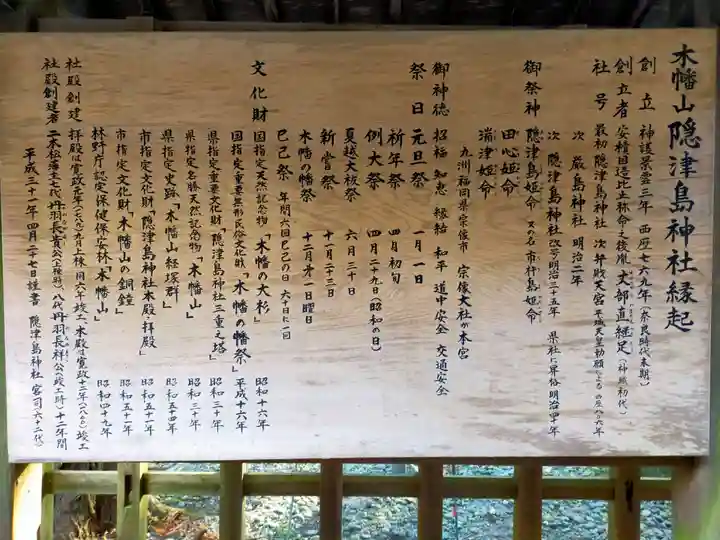 木幡山隠津島神社縁起
創立 神護景雲三年 西歴七六九年(奈良時代末期)
創立者 安積国造比止祢命之後胤 丈部直継足(神職初代)
社号 最初 隠津島神社 次 弁財天宮 平城天皇勅願による 西歴八〇六年
次 厳島神社 明治二年
次 隠津島神社 改号明治三十五年 県社に昇格明治四十年
御祭神 隠津島姫命 又の名 市杵島姫命
田心姫命
湍津姫命
九州福岡県宗像市 宗像大社が本宮
御神徳 招福 知恵 縁結 和平 道中安全 交通安全
祭日 元旦祭 一月一日
祈年祭 四月初旬
例大祭 四月二十九(昭和の日)
夏越大祓祭 六月三十日
新嘗祭 十一月二十三日
木幡の幡祭 十二月第一日曜日
巳己祭 年間六回己巳の日 六十日に一回
文化財 国指定天然記念物「木幡の大杉」 昭和十六年
国指定重要無形民俗文化財「木幡の幡祭」 平成十六年
県指定重要文化財「隠津島神社三重之塔」 昭和三十年
県指定名勝天然記念物「木幡山」 昭和三十年
県指定史跡「木幡山経塚群」 昭和五十四年
市指定文化財「隠津島神社本殿・拝殿」 昭和五十一年
市指定文化財「木幡山の銅鐘」 昭和五十一年
林野庁認定保健保安林「木幡山」 昭和四十九年
社殿創建 拝殿は寛政九年(一七九七)九月上棟 同六年竣工、本殿は寛政十二年(一八〇〇)竣工
社殿創建者 二本松藩主七代丹羽長貴公(上棟時)八代丹羽長祥公(竣工時)十二年間
平成三十一年四月二十七日謹書 隠津島神社宮司(六十二代)